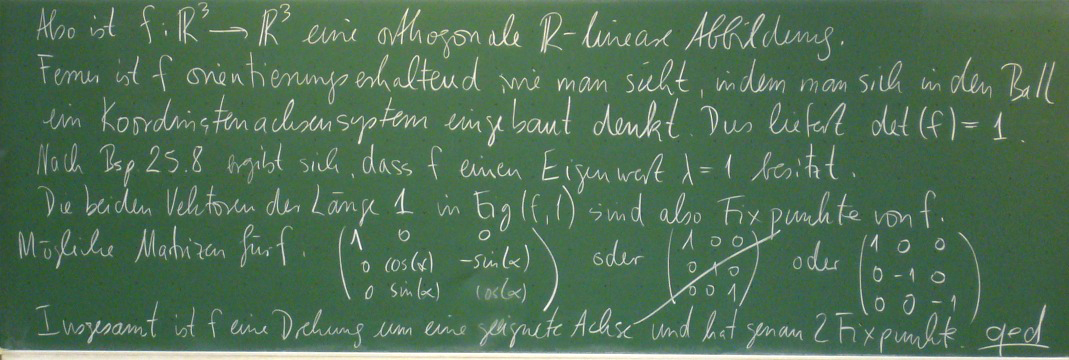 Also ist f : ℝ³ → ℝ³ eine orthogonale ℝ-lineare Abbildung.
Ferner ist f orientierungserhaltend, wie man sieht, indem man sich in den Ball
ein Koordinatenachsensystem eingebaut denkt. Dies liefert det(f) = 1.
Nach Bsp. 25.8 ergibt sich, dass f einen Eigenwert λ = 1 besitzt.
Die beiden Vektoren der Länge 1 in Eig(f,1) sind also Fixpunkte von f.
Mögliche Matrizen für f: (1 0 0 oder (1 0 0) oder (1 0 0
0 cos(α) -sin(α) 0 1 0 0 -1 0
0 sin(α) cos(α)) 0 0 1 0 0 -1)
Insgesamt ist f eine Drehung um eine geeignete Achse und hat genau 2 Fixpunkte. qed